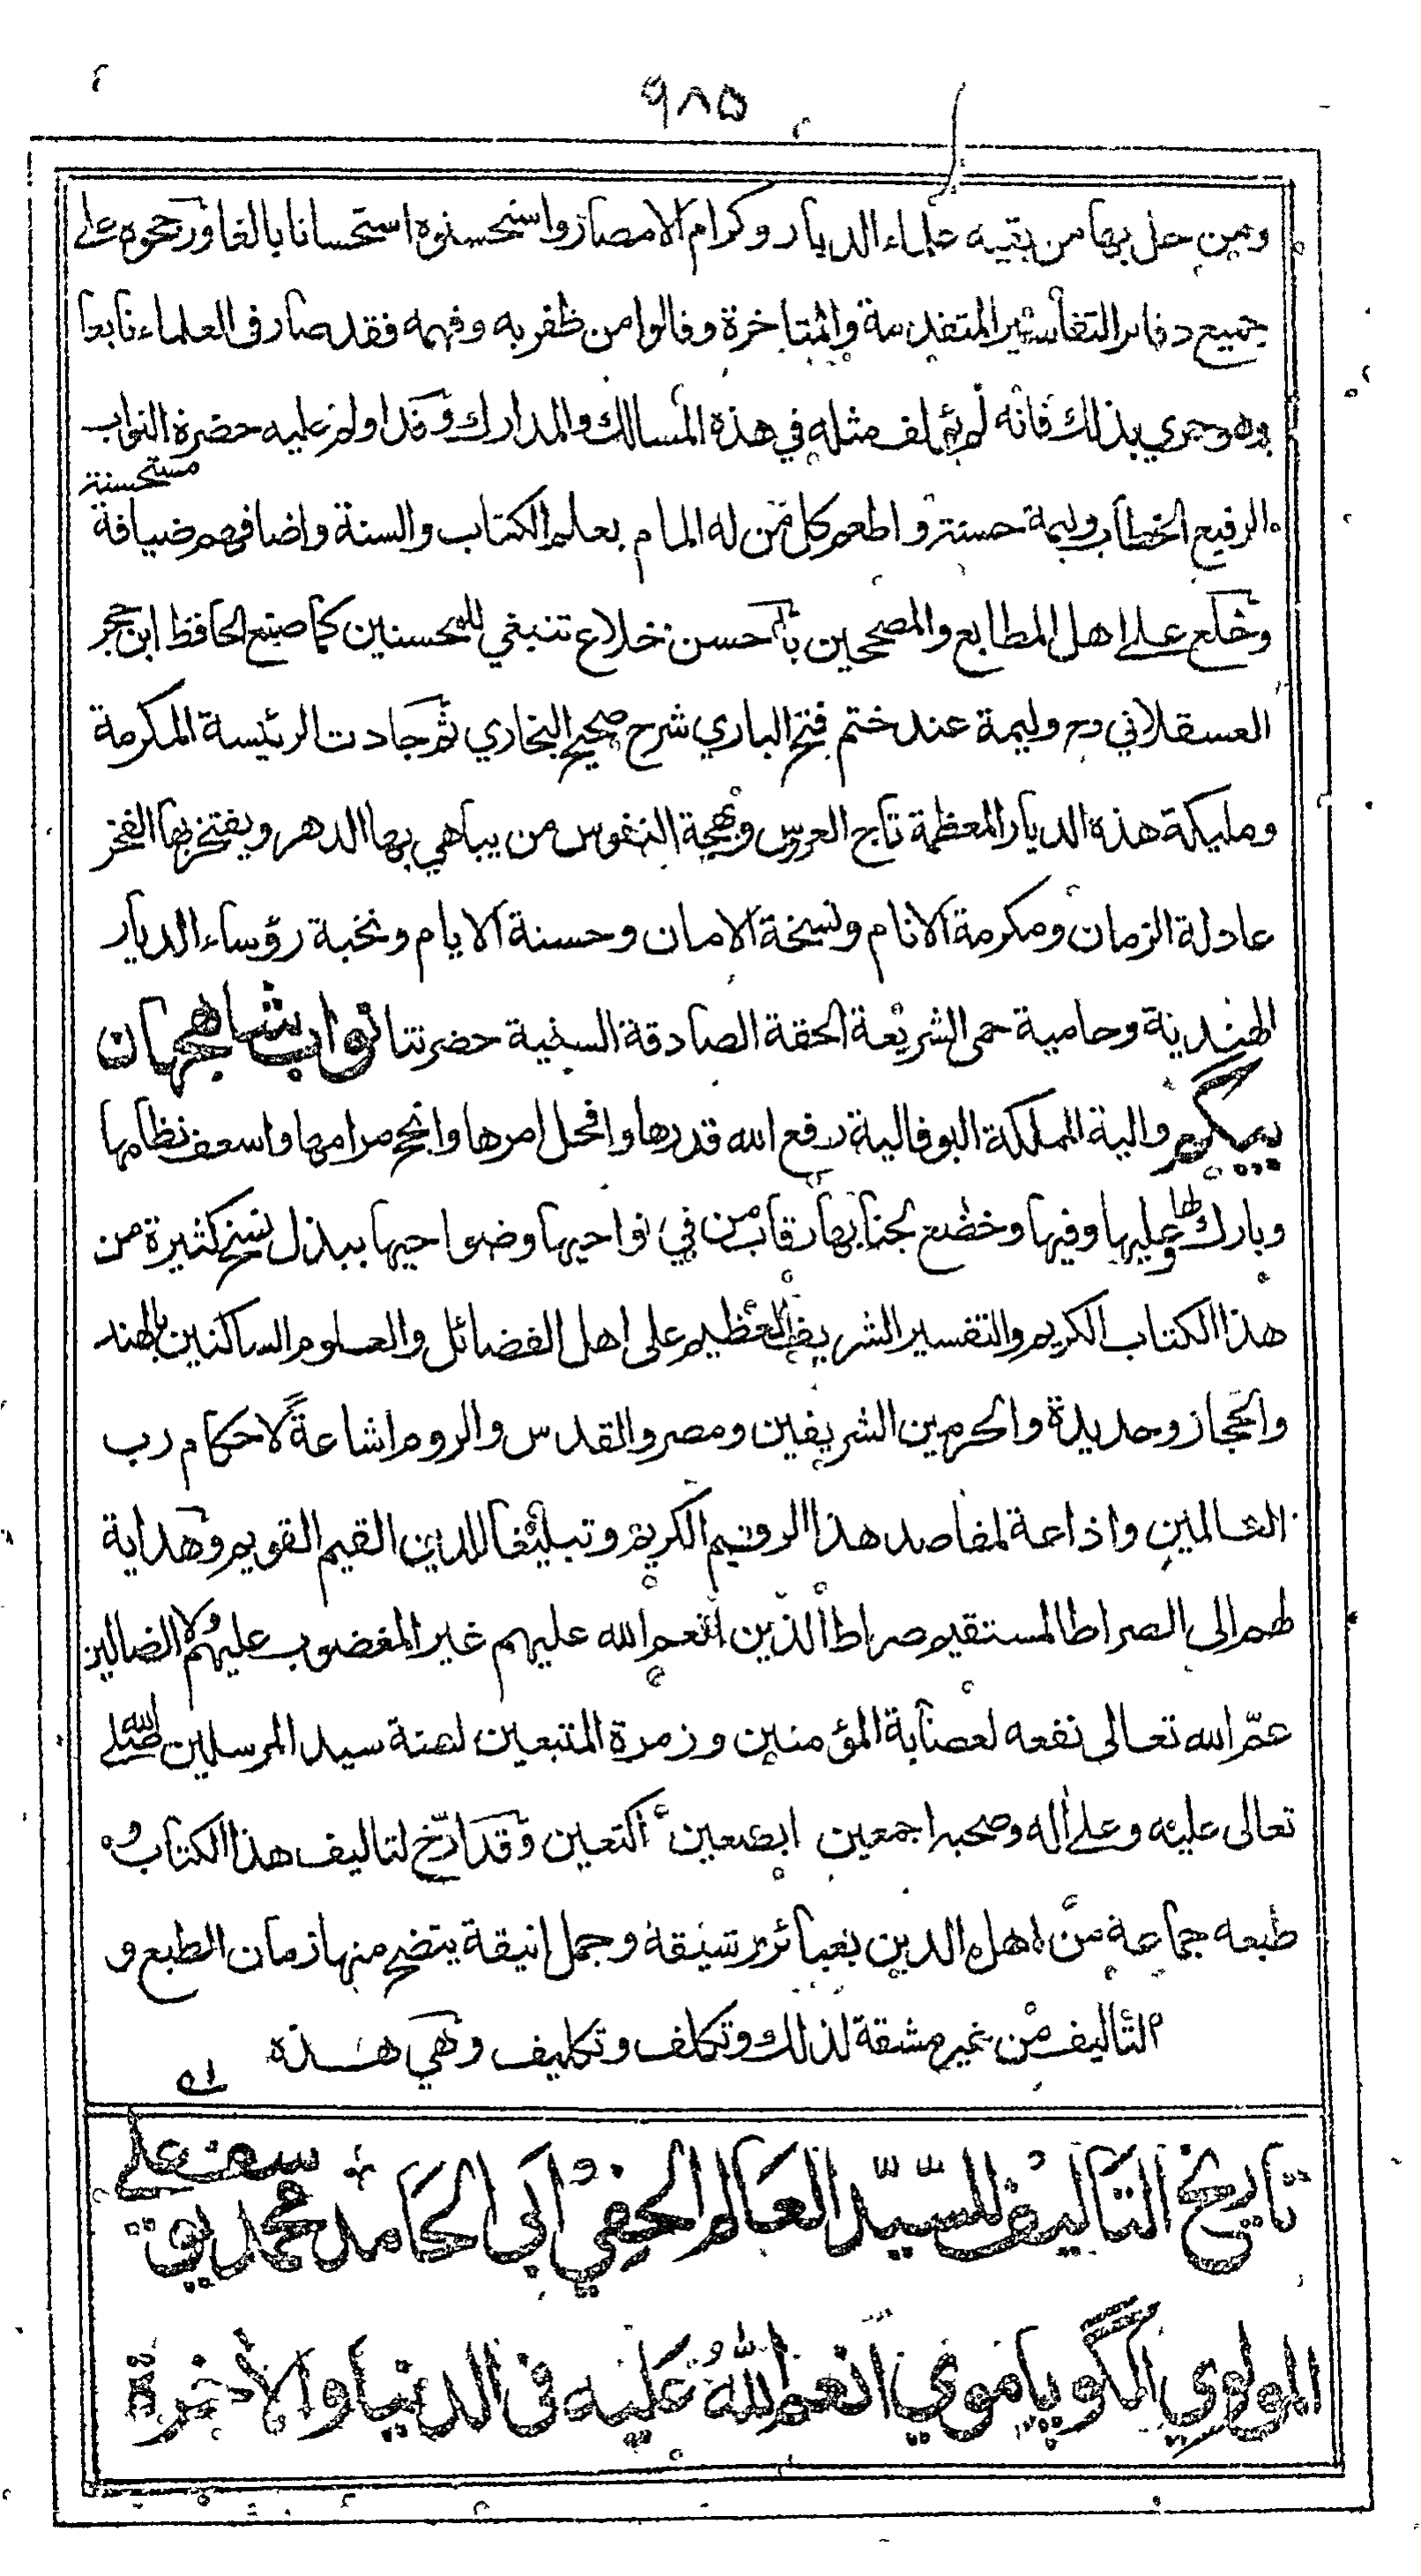 ٩٨٥
ومن حل بها من بقيه علماء الديار وكرام الامصار واستحسنوه استحسانا بالغا ورجحوه على
جميع دفاتر التفاسير المتقدمة والمتاخرة وقالوا من ظفر به وفهمه فقد صار فى العلماء نابعا
وهو حري بذلك فانه لم يؤلف مثله في هذه المسالك والمدارك وقد اولم عليه حضرة النواب
الرفيع الخطاب وليمة حسنة واطعم كل من له المام بعلم الكتاب والسنة واضافهم ضيافة مستحسنة
وخلع على اهل المطابع والمصححين باحسن خلاع تنبغي للمحسنين كما صنع الحافظ ابن حجر
العسقلاني رح وليمة عند ختم فتح الباري شرح صحيح البخاري ثم جادت الرئيسة المكرمة
ومليكة هذه الديار المعظمة تاج العروس وبهجة النفوس من يباهي بها الدهر ويفتخر بها الفخر
عادلة الزمان ومكرمة الانام ونسخة الامان وحسنة الايام ونخبة رؤساء الديار
الهندية وحامية حمى الشريعة الحقة الصادقة السنية حضرتنا نواب شاهجهان
بيگم والية المملكة البوفالية رفع الله قدرها وافحل امرها وانجح مرامها واسعف نظامها
وبارك لها وعليها وفيها وخضع لجنابها رقاب من في نواحيها وضواحيها ببذل نسخ كثيرة من
هذا الكتاب الكريم والتفسير الشريف العظيم على اهل الفضائل والعلوم الساكنين بالهند
والحجاز وحديدة والحرمين الشريفين ومصر والقدس والروم اشاعةً لاحكام رب
العالمين واذاعة لمقاصد هذا الرقيم الكريم وتبليغا للدين القيم القويم وهداية
لهم الى الصراط المستقيم صراط الذين انعم الله عليهم غير المغضوب عليهم ولا الضالين
عمّر الله تعالى نفعه لعصابة المؤمنين وزمرة المتبعين لسنة سيد المرسلين صلى الله
تعالى عليه وعلى اله وصحبه اجمعين ابصعين اكتعين وقد ارّخ لتاليف هذا الكتاب و
طبعه جماعة من اهل الدين بعبائر رشيقة وجمل انيقة يتضح منها زمان الطبع و
التأليف من غير مشقة لذلك وتكلف وتكليف وهي هذه
تاريخ التأليف للسيّد العالم الحفي ابي الحامد محمد يوسف علي
المولوي الگوپاموي انعم اللهُ عليه فى الدنيا والاخرة